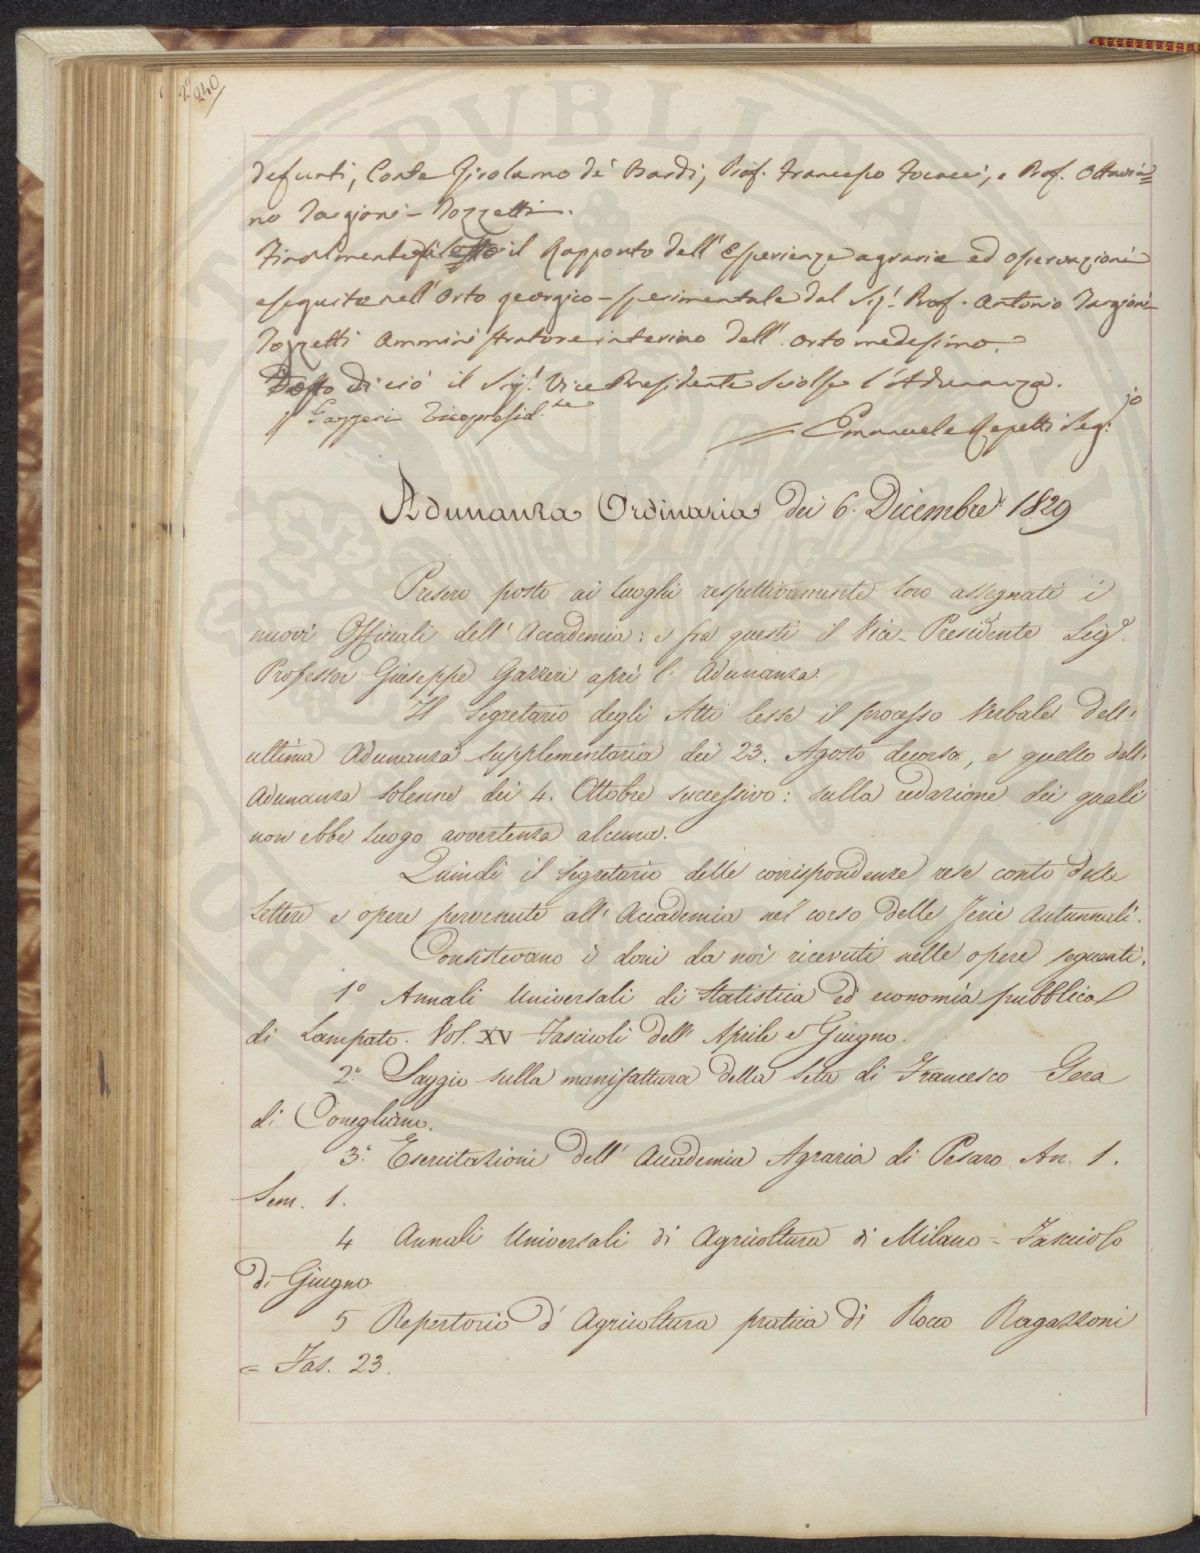 240
defunti, Conte Girolamo de' Bardi, Prof. Francesco Focacci, e Prof. Ottavia=
no Targioni-Tozzetti.
Finalmente il Rapporto dell'Esperienze agrarie ed osservazioni
eseguite nell'Orto georgico-sperimentale dal Sig.r Prof. Antonio Targioni-
Tozzetti Amministratore interino dell'Orto medesimo.
Dopo di ciò il Sig.r Vice Presidente sciolse l'Adunanza.
G Gazzeri Vicepresid.te
Emanuele Repetti Seg.rio
Adunanza Ordinaria dei 6. Dicembre 1829
Presero posto ai luoghi respettivamente loro assegnati i
nuovi Officiali dell'Accademia: e fra questi il Vice-Presidente Sig.r
Professor Giuseppe Gazzeri aprì l'Adunanza.
Il Segretario degli Atti lesse il processo Verbale dell'
ultima Adunanza supplementaria dei 23. Agosto decorso, e quello dell'
Adunanza solenne dei 4. Ottobre successivo: sulla redazione dei quali
non ebbe luogo avvertenza alcuna.
Quindi il Segretario delle corrispondenze rese conto delle
Lettere e opere pervenute all'Accademia nel corso delle Ferie Autunnali.
Consistevano i doni da noi ricevuti nelle opere seguenti.
1º Annali Universali di Statistica ed economia pubblica
di Lampato. Vol. XV Fascicoli dell'Aprile e Giugno.
2.º Saggio sulla manifattura della Seta di Francesco Gera
di Conegliano.
3.º Esercitazioni dell'Accademia Agraria di Pesaro An. 1.
Sem. 1.
4 Annali Universali di Agricoltura di Milano = Fascicolo
di Giugno
5 Repertorio d'Agricoltura pratica di Rocco Ragazzoni
= Fas. 23.